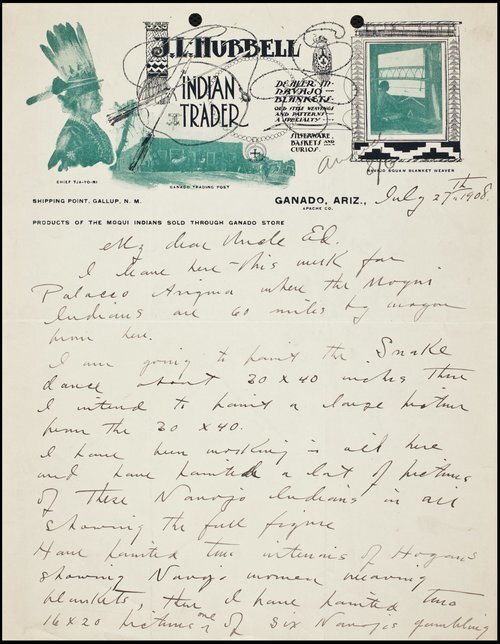 J.L. HUBBELL
INDIAN
TRADER
DEALER IN
NAVAJO
BLANKETS
OLD STYLE WEAVINGS
AND PATTERNS
A SPECIALTY
SILVERWARE,
BASKETS AND
CURIOS.
CHIEF TJA-YO-NI
GANADO TRADING POST
NAVAJO SQUAW BLANKET WEAVER
SHIPPING POINT, GALLUP, N. M.
GANADO, ARIZ.,
APACHE CO.
July 27th 1908.
PRODUCTS OF THE MOQUI INDIANS SOLD THROUGH GANADO STORE
My dear Uncle Ed.
I leave here this week for
Palacco Arizona where the Moqui
Indians are 60 miles by wagon
from here.
I am going to paint the Snake
dance about 30 x 40 inches then
I intend to paint a large picture
from the 30 x 40.
I have been working in oil here
and have painted a lot of pictures
of these Navajo Indians in oil
showing the full figure
Have painted two interiors of Hogans
showing Navajo women weaving
blankets, then I have painted two
16 x 20 pictures one of six Navajos gambling